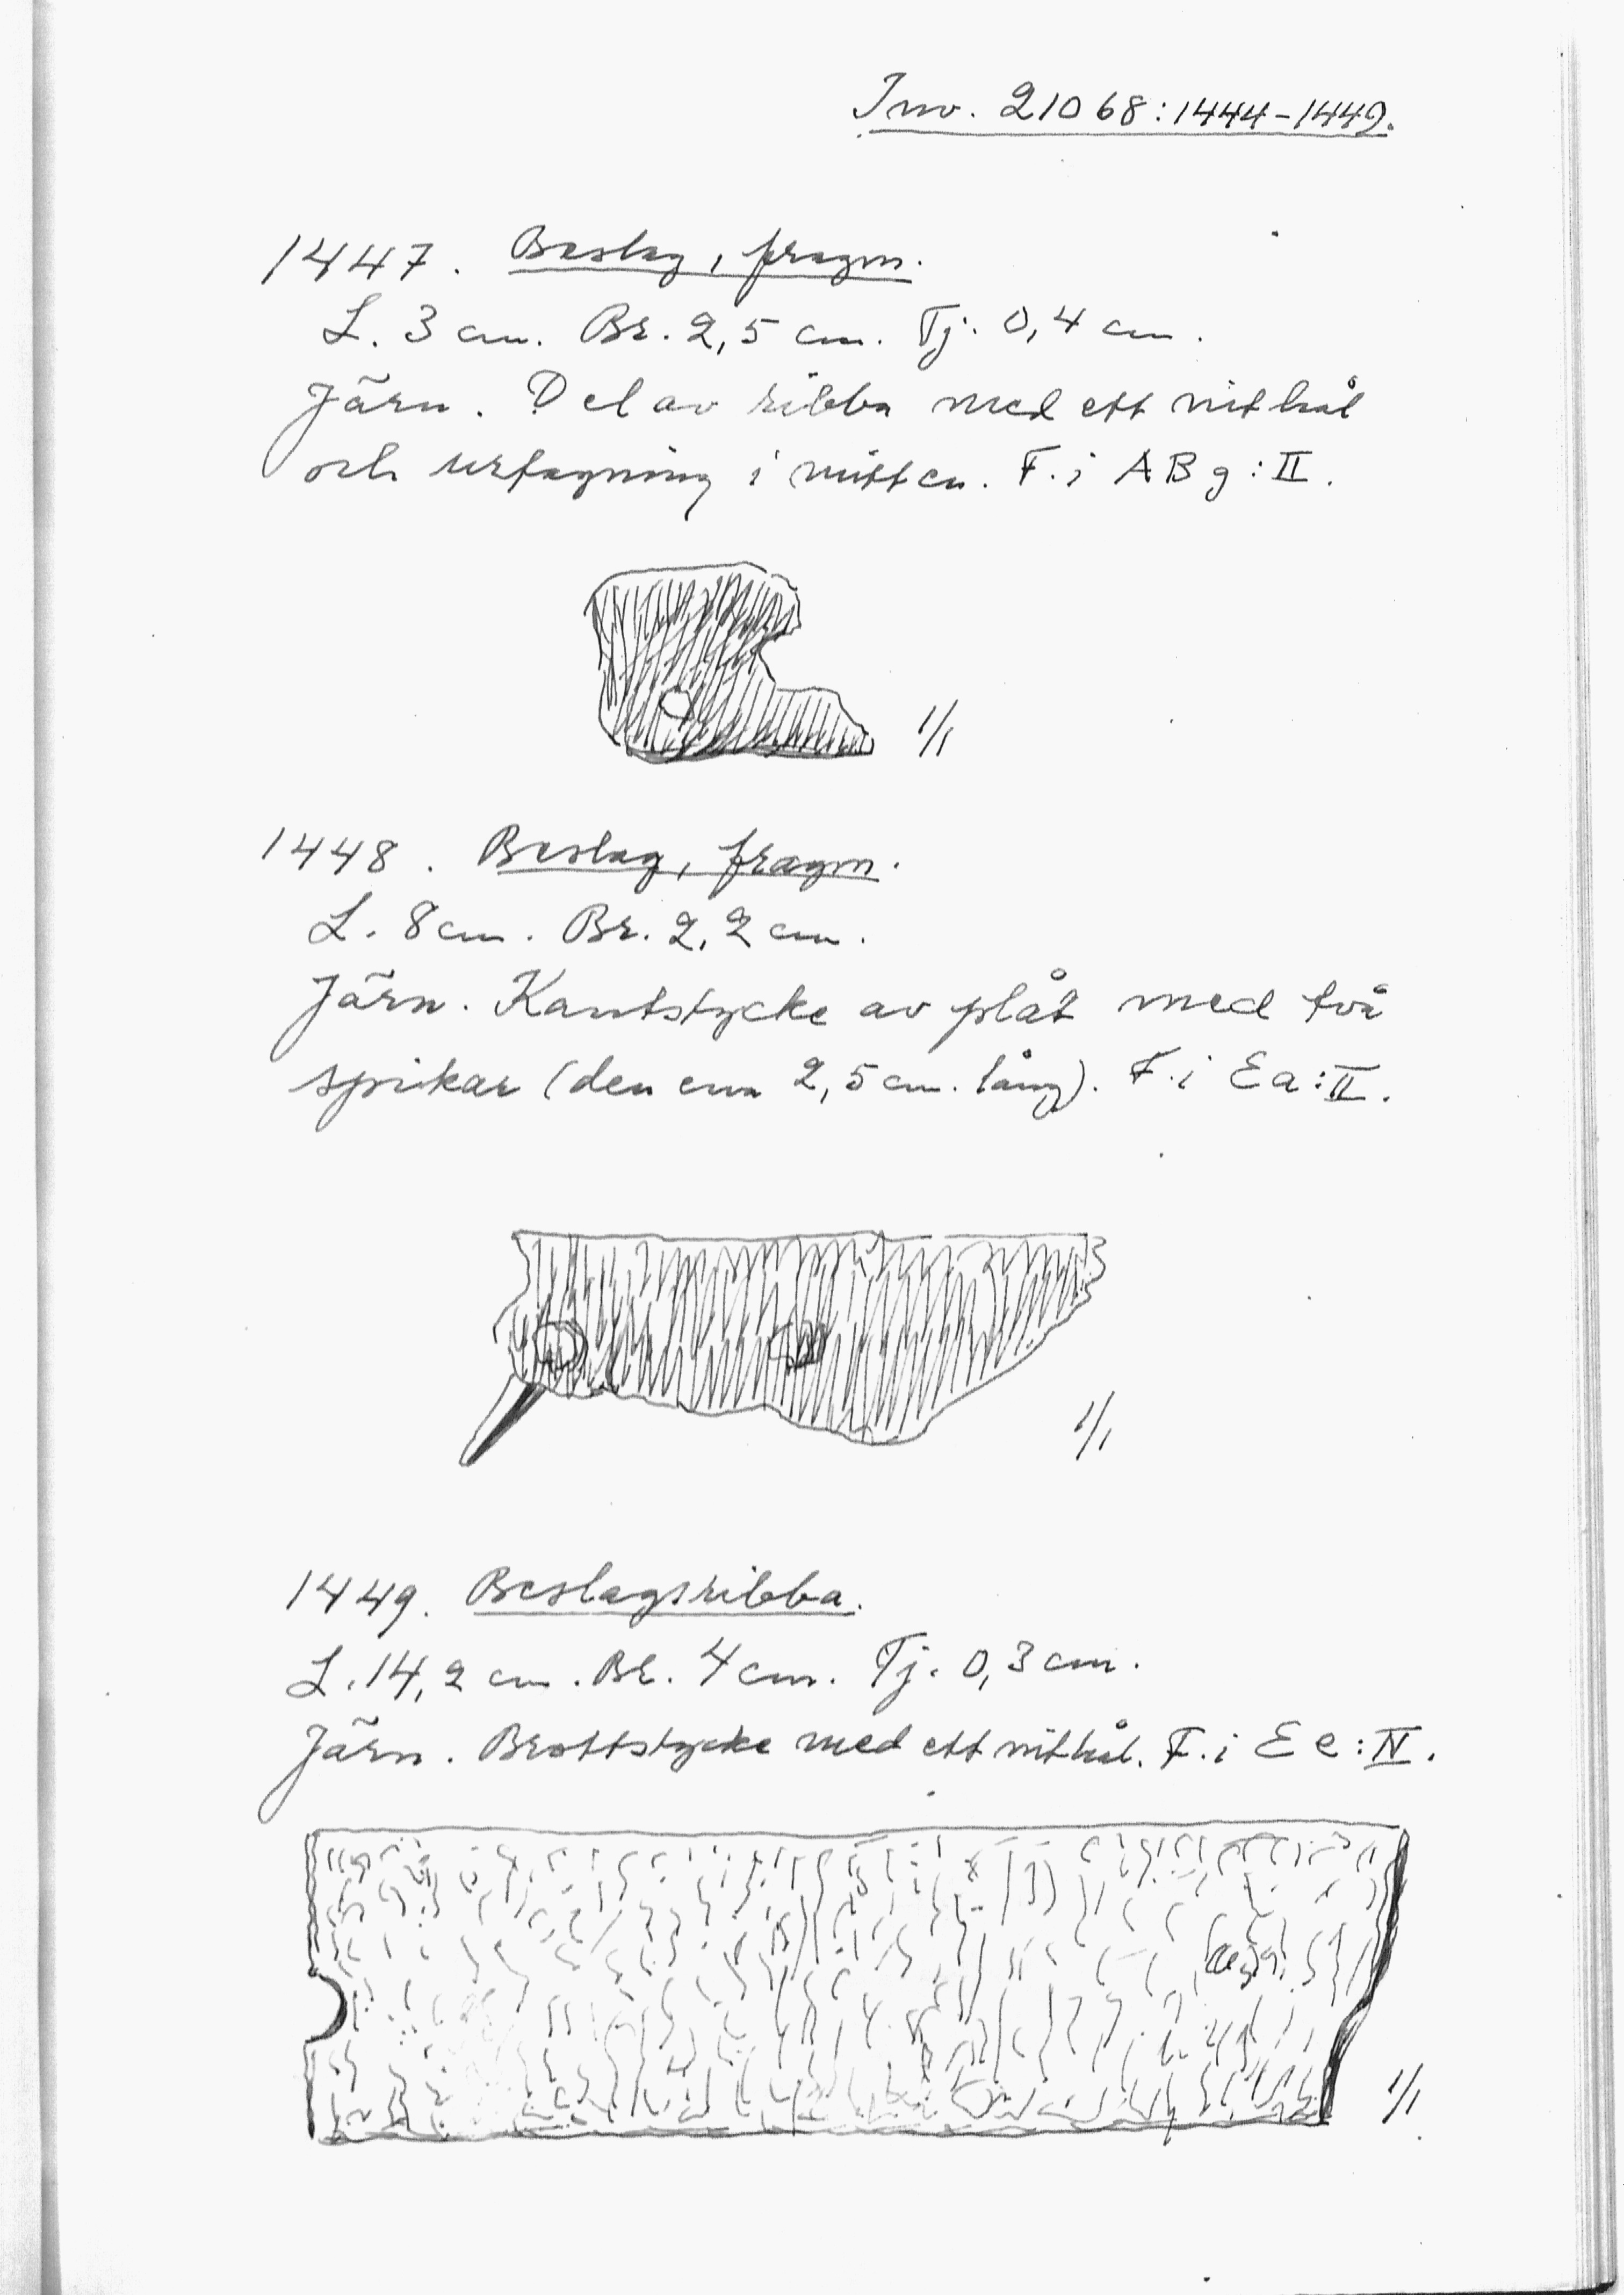 Inv. 21068:1444-1449.
1447. Beslag, fragm.
L. 3 cm. Br. 2,5 cm. Tj. 0,4 cm.
Järn. Del av ribba med ett nithål
och urtagning i mitten. F. i ABg:II.
1/1
1448. Beslag, fragm.
L. 8 cm. Br. 2,2 cm.
Järn. Kantstycke av plåt med två
spikar (den ena 2,5 cm. lång). F. i Ea:II.
1/1
1449. Beslagsribba.
L. 14,2 cm. Br. 4 cm. Tj. 0,3 cm.
Järn. Brottstycke med ett nithål. F. i Ee:IV.
1/1